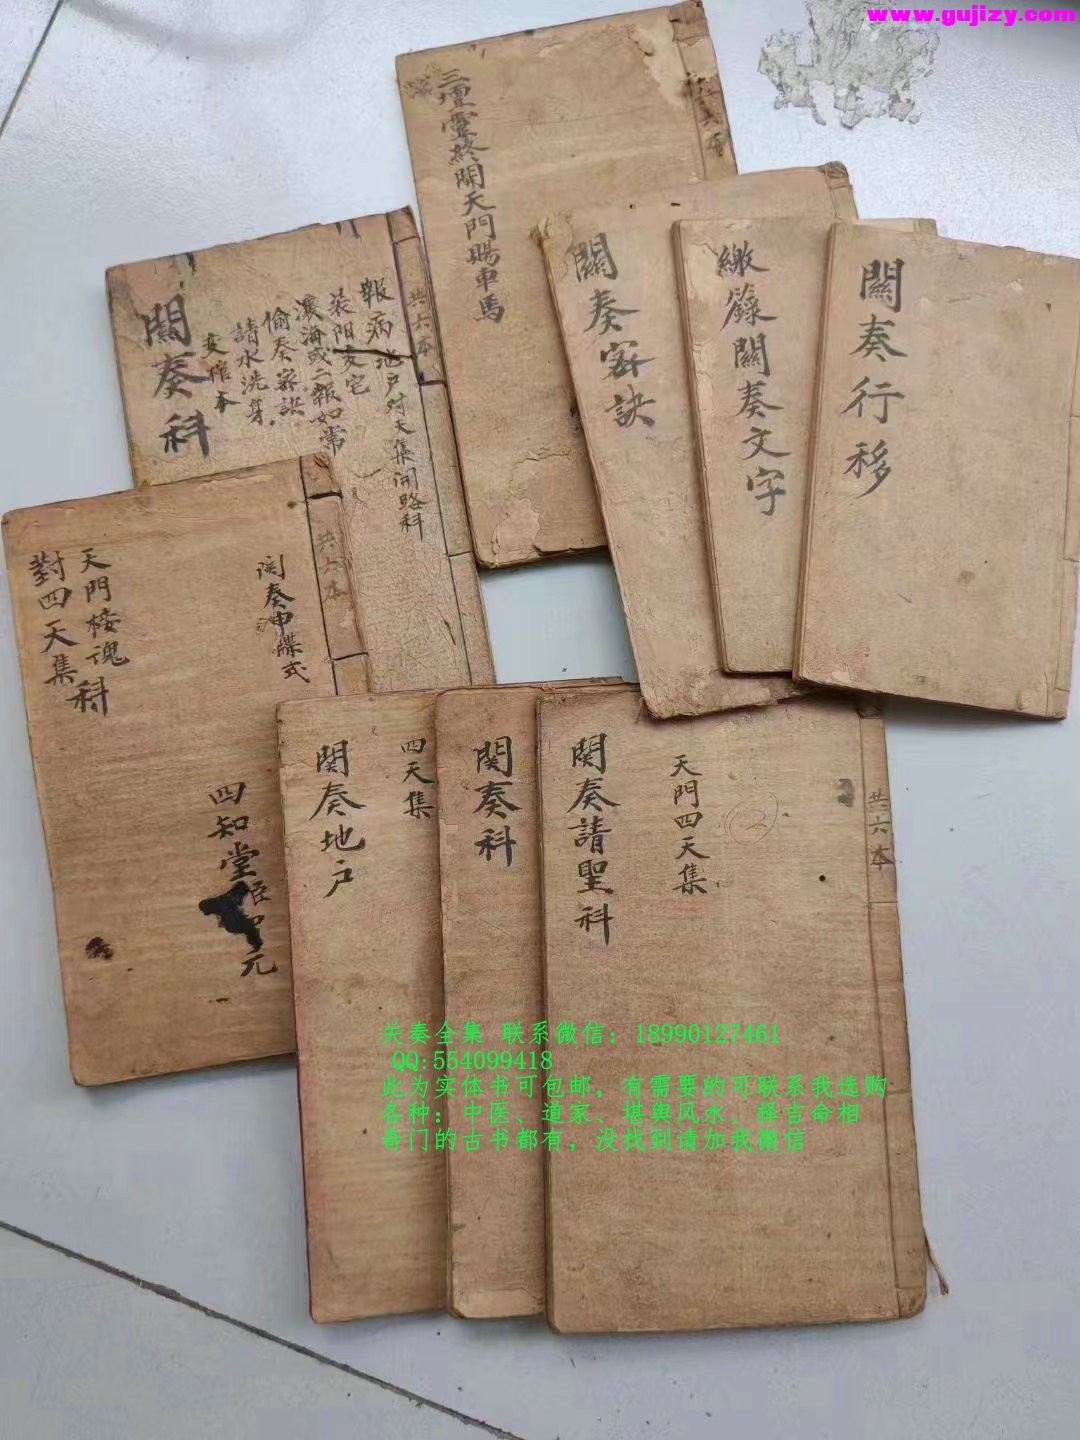 www.gujizy.com
三壇靈終開天門賜車馬
共六本
關奏密訣
繳籙關奏文字
關奏行移
關奏科
報病地户对天集開路科
装阳亥宅
濮海或二報如常
偷奏密訣
請水洗身
安棺本
共六本
對四天集
天門接魂科
関奏沖牒式
共六本
四知堂
元
関奏地户
四天集
関奏科
関奏請聖科
天門四天集
2
共六本
关奏全集 联系微信：18990127461
QQ:554099418
此为实体书可包邮，有需要的可联系我选购
各种：中医、道家、堪舆风水、择吉命相
奇门的古书都有，没找到请加我微信